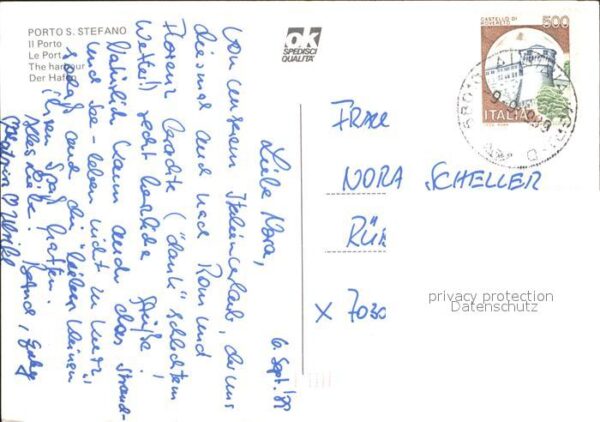 PORTO S. STEFANO
Il Porto
Le Port
The harbour
Der Hafen
ok
SPEDISCI
QUALITA'
CASTELLO DI
ROVERETO
500
ITALIA
FRAU
NORA SCHELLER
RÜ
X 7030
privacy protection
Datenschutz
6. Sept. '89
Liebe Nora,
von unserem Italienurlaub, der uns
diesmal auch nach Rom und
Florenz führte ("dank" schlechtem
Wetter!) recht herzliche Grüße!
Natürlich kam auch das Strand-
und See-leben nicht zu kurz,
sodaß auch die lieben Kleinen
ihren Spaß hatten.
Alles Liebe